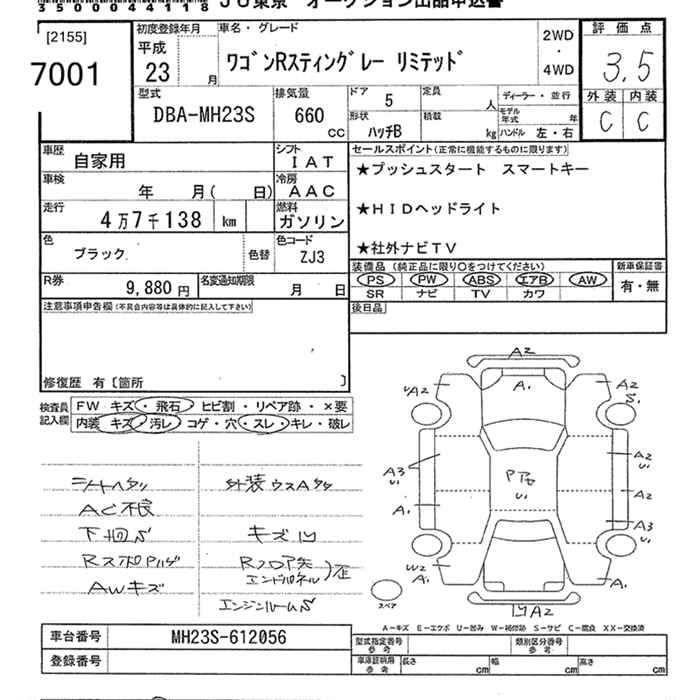 35000044118 JU東京 オークション出品申込書
[2155]
7001
初度登録年月
平成
23 月
車名・グレード
ワゴンRスティングレー リミテッド
2WD
・
4WD
評価点
3,5
外装 内装
C C
型式
DBA-MH23S
排気量
660
CC
ドア
5
定員
人
ディーラー・並行
形状
ハッチB
積載
kg
モデル年式 年
ハンドル 左・右
車歴
自家用
シフト
IAT
車検
年 月( 日)
冷房
AAC
走行
4万7千138 km
燃料
ガソリン
色
ブラック
色替
色コード
ZJ3
R券
9,880 円
名変通知期限
月 日
セールスポイント(正常に機能するものに限ります)
★プッシュスタート スマートキー
★HIDヘッドライト
★社外ナビTV
装備品 (純正品に限り○をつけてください)
PS PW ABS エアB AW
SR ナビ TV カワ
新車保証書
有・無
後日品
注意事項申告欄(不具合内容等は具体的に記入して下さい)
修復歴 有〔箇所 〕
検査員
記入欄
FW キズ・飛石・ヒビ割・リペア跡・×要
内装 キズ・汚レ・コゲ・穴・スレ・キレ・破レ
シートヘタリ
AC不良
下回S
AWキズ
外装ウスAタタ
キズ凹
エンドパネル
エンジンルームS
A2
A.
A2
A2
S.
A3
U.
A2
U.
A2
A.
A3
U.
W2
A.
A.
凹A2
スペア
A−キズ E−エクボ U−凹み W−補修跡 S−サビ C−腐食 XX−交換済
車台番号 MH23S-612056
登録番号
型式指定番号
参考
類別区分番号
参考
車庫証明用
参考
長さ cm
幅 cm
高さ cm